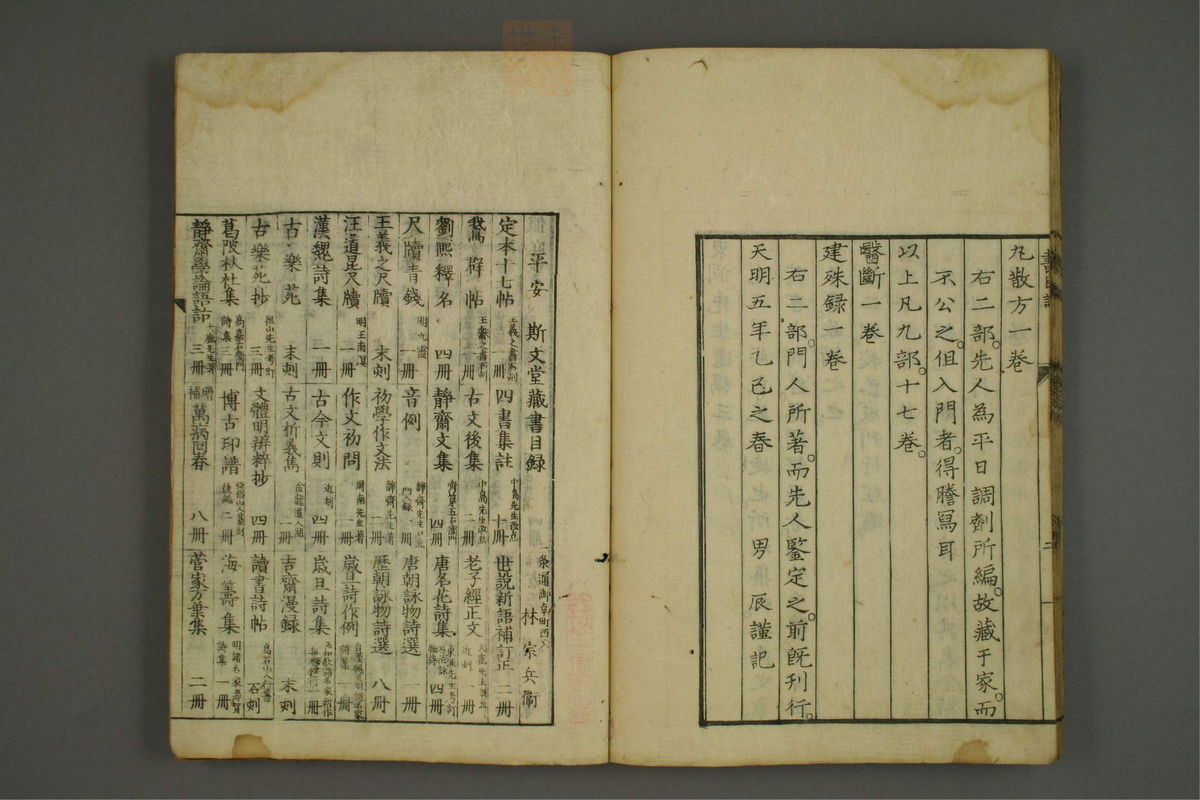 丸散方一卷
右二部。先人為平日調劑所編。故藏于家。而
不公之。但入門者。得謄寫耳
以上凡九部。十七卷。
醫斷一卷
建殊録一卷
右二部。門人所著。而先人鑒定之。前既刊行。
天明五年乙巳之春 男 辰 謹記
平安 斯文堂藏書目録 二条通御幸町西入 林宗兵衛
定本十七帖 王羲之書 一冊 四書集註 中島先生改点 十冊 世説新語補訂正 二冊
鵞群帖 王献之書 一冊 古文後集 中島先生改点 二冊 老子經正文 近刻 一冊
劉熙釋名 四冊 靜齋文集 四冊 唐名花詩集 四冊
尺牘青錢 明九霞 一冊 音例 一冊 唐朝詠物詩選 一冊
王羲之尺牘 未刻 初學作文法 靜齋先生著 二冊 歴朝詠物詩選 八冊
汪道昆尺牘 明王南溟 二冊 作文初問 周南先生著 一冊 歳旦詩作例 一冊
漢魏詩集 一冊 古今文則 近刻 四冊 歳旦詩集 一冊
古樂苑 未刻 古文折義雋 金龍道人 二冊 吉齋漫録 未刻
古樂苑抄 三冊 文體明辨粹抄 四冊 讀書詩帖 石刻
葛陂林杜集 詩集 三冊 博古印譜 後編 二冊 海籌集 詩集 一冊
靜齋學論語訪 三冊 増補 萬病回春 八冊 菅家万葉集 二冊